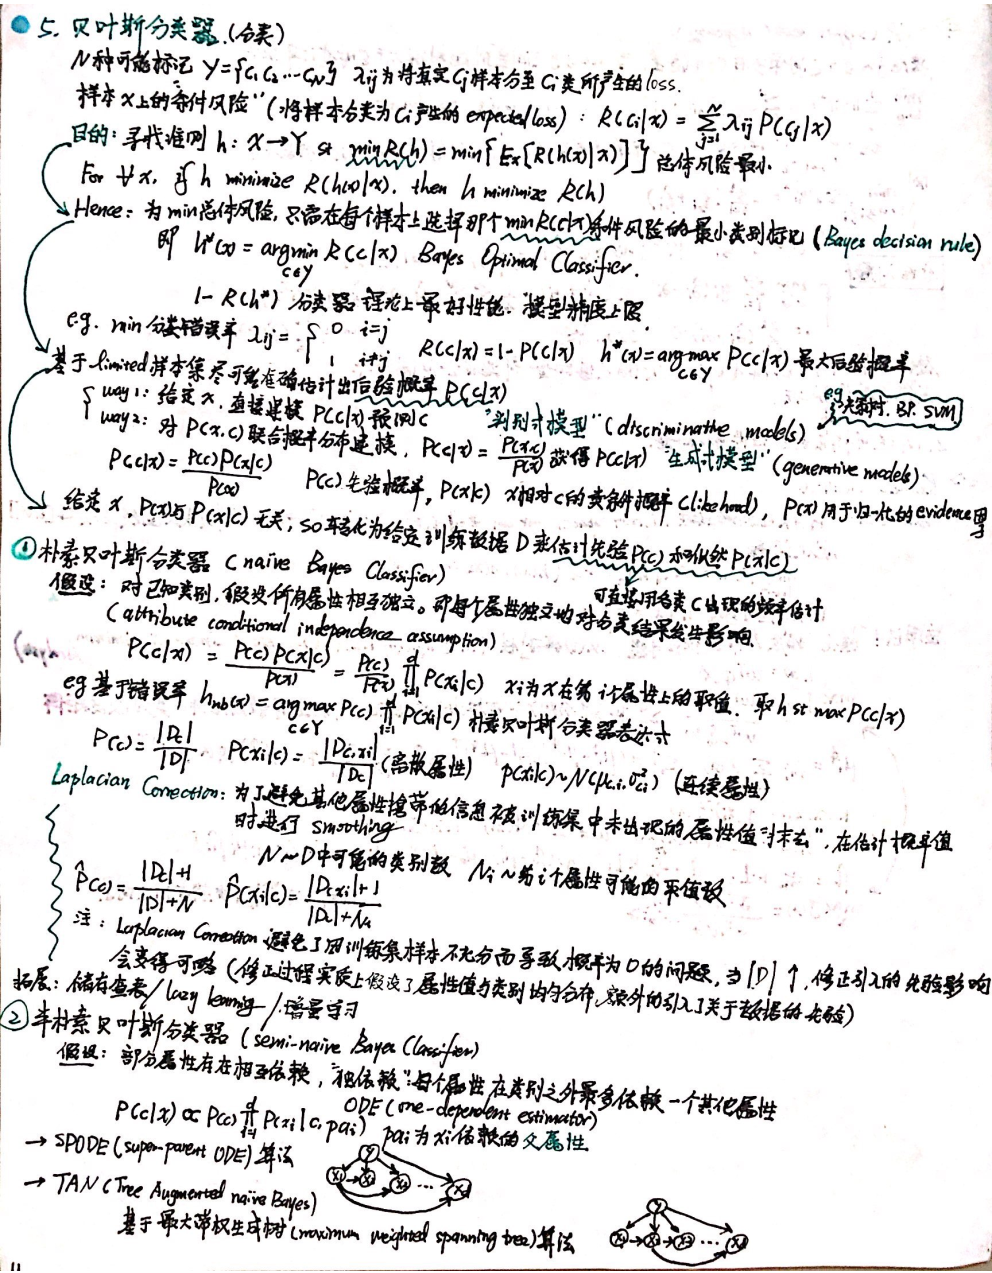 5. 贝叶斯分类器.(分类)
N种可能标记 Y={C₁ C₂ ... C_N} λij为将真实Cj样本分至Ci类所产生的loss.
样本x上的"条件风险"(将样本分类为Ci产生的expected loss): R(Ci|x) = Σ_{j=1}^{N} λij P(Cj|x)
目的: 寻找准则 h: X→Y st min R(h) = min{Ex[R(h(x)|x)]} 总体风险最小.
For ∀x, if h minimize R(h(x)|x). then h minimize R(h)
Hence: 为min总体风险, 只需在每个样本上选择那个min R(c|x)条件风险的最小类别标记 (Bayes decision rule)
即 h*(x) = argmin_{c∈Y} R(c|x) Bayes Optimal Classifier.
1- R(h*) 分类器理论上最好性能. 模型精度上限.
e.g. min 分类错误率 λij = { 0 i=j
1 i≠j R(c|x)=1-P(c|x) h*(x)=argmax_{c∈Y} P(c|x) 最大后验概率
基于limited样本集尽可能准确估计出后验概率 P(c|x)
way 1: 给定x, 直接建模 P(c|x) 预测c "判别式模型" (discriminative models) eg 决策树. BP. SVM
way 2: 对P(x,c)联合概率分布建模, P(c|x) = P(x,c)/P(x) 获得P(c|x) "生成式模型" (generative models).
P(c|x) = P(c)P(x|c)/P(x) P(c) 先验概率, P(x|c) x相对c的类条件概率 (likehood), P(x)用于归一化的evidence因子
给定x, P(x)与P(x|c)无关, so转化为给定训练数据D来估计先验P(c)和似然P(x|c)
可直接用各类C出现的频率估计
① 朴素贝叶斯分类器 (naive Bayes Classifier)
假设: 对已知类别, 假设所有属性相互独立。即每个属性独立地对分类结果发生影响.
(attribute conditional independence assumption)
P(c|x) = P(c)P(x|c)/P(x) = P(c)/P(x) ∏_{i=1}^{d} P(xi|c) xi为x在第i个属性上的取值. 取h st max P(c|x)
eg 基于错误率 h_{nb}(x) = argmax_{c∈Y} P(c) ∏_{i=1}^{d} P(xi|c) 朴素贝叶斯分类器表达式
P(c) = |Dc|/|D| P(xi|c) = |Dc,xi|/|Dc| (离散属性) p(xi|c)~N(μc,i, σ²c,i) (连续属性)
Laplacian Correction: 为了避免其他属性携带的信息被训练集中未出现的属性值"抹去", 在估计概率值
时进行 smoothing
N~D中可能的类别数 Ni~第i个属性可能的取值数
P̂(c) = |Dc|+1/|D|+N P̂(xi|c) = |Dc,xi|+1/|Dc|+Ni
注: Laplacian Correction 避免了因训练集样本不充分而导致概率为0的问题, 当|D|↑, 修正引入的先验影响
会变得可略 (修正过程实质上假设了属性值与类别均匀分布, 额外的引入了关于数据的先验)
拓展: 储存查表/lazy learning/增量学习
② 半朴素贝叶斯分类器 (semi-naive Bayes Classifier)
假设: 部分属性存在相互依赖, "独依赖": 每个属性在类别之外最多依赖一个其他属性
ODE (one-dependent estimator)
P(c|x) ∝ P(c) ∏_{i=1}^{d} P(xi|c, pai) pai为xi依赖的父属性
→ SPODE (super-parent ODE) 算法
y x₁ x₂ x₃ ... xd
→ TAN (Tree Augmented naive Bayes)
基于最大带权生成树 (maximum weighted spanning tree) 算法
y x₁ x₂ x₃ ... xd